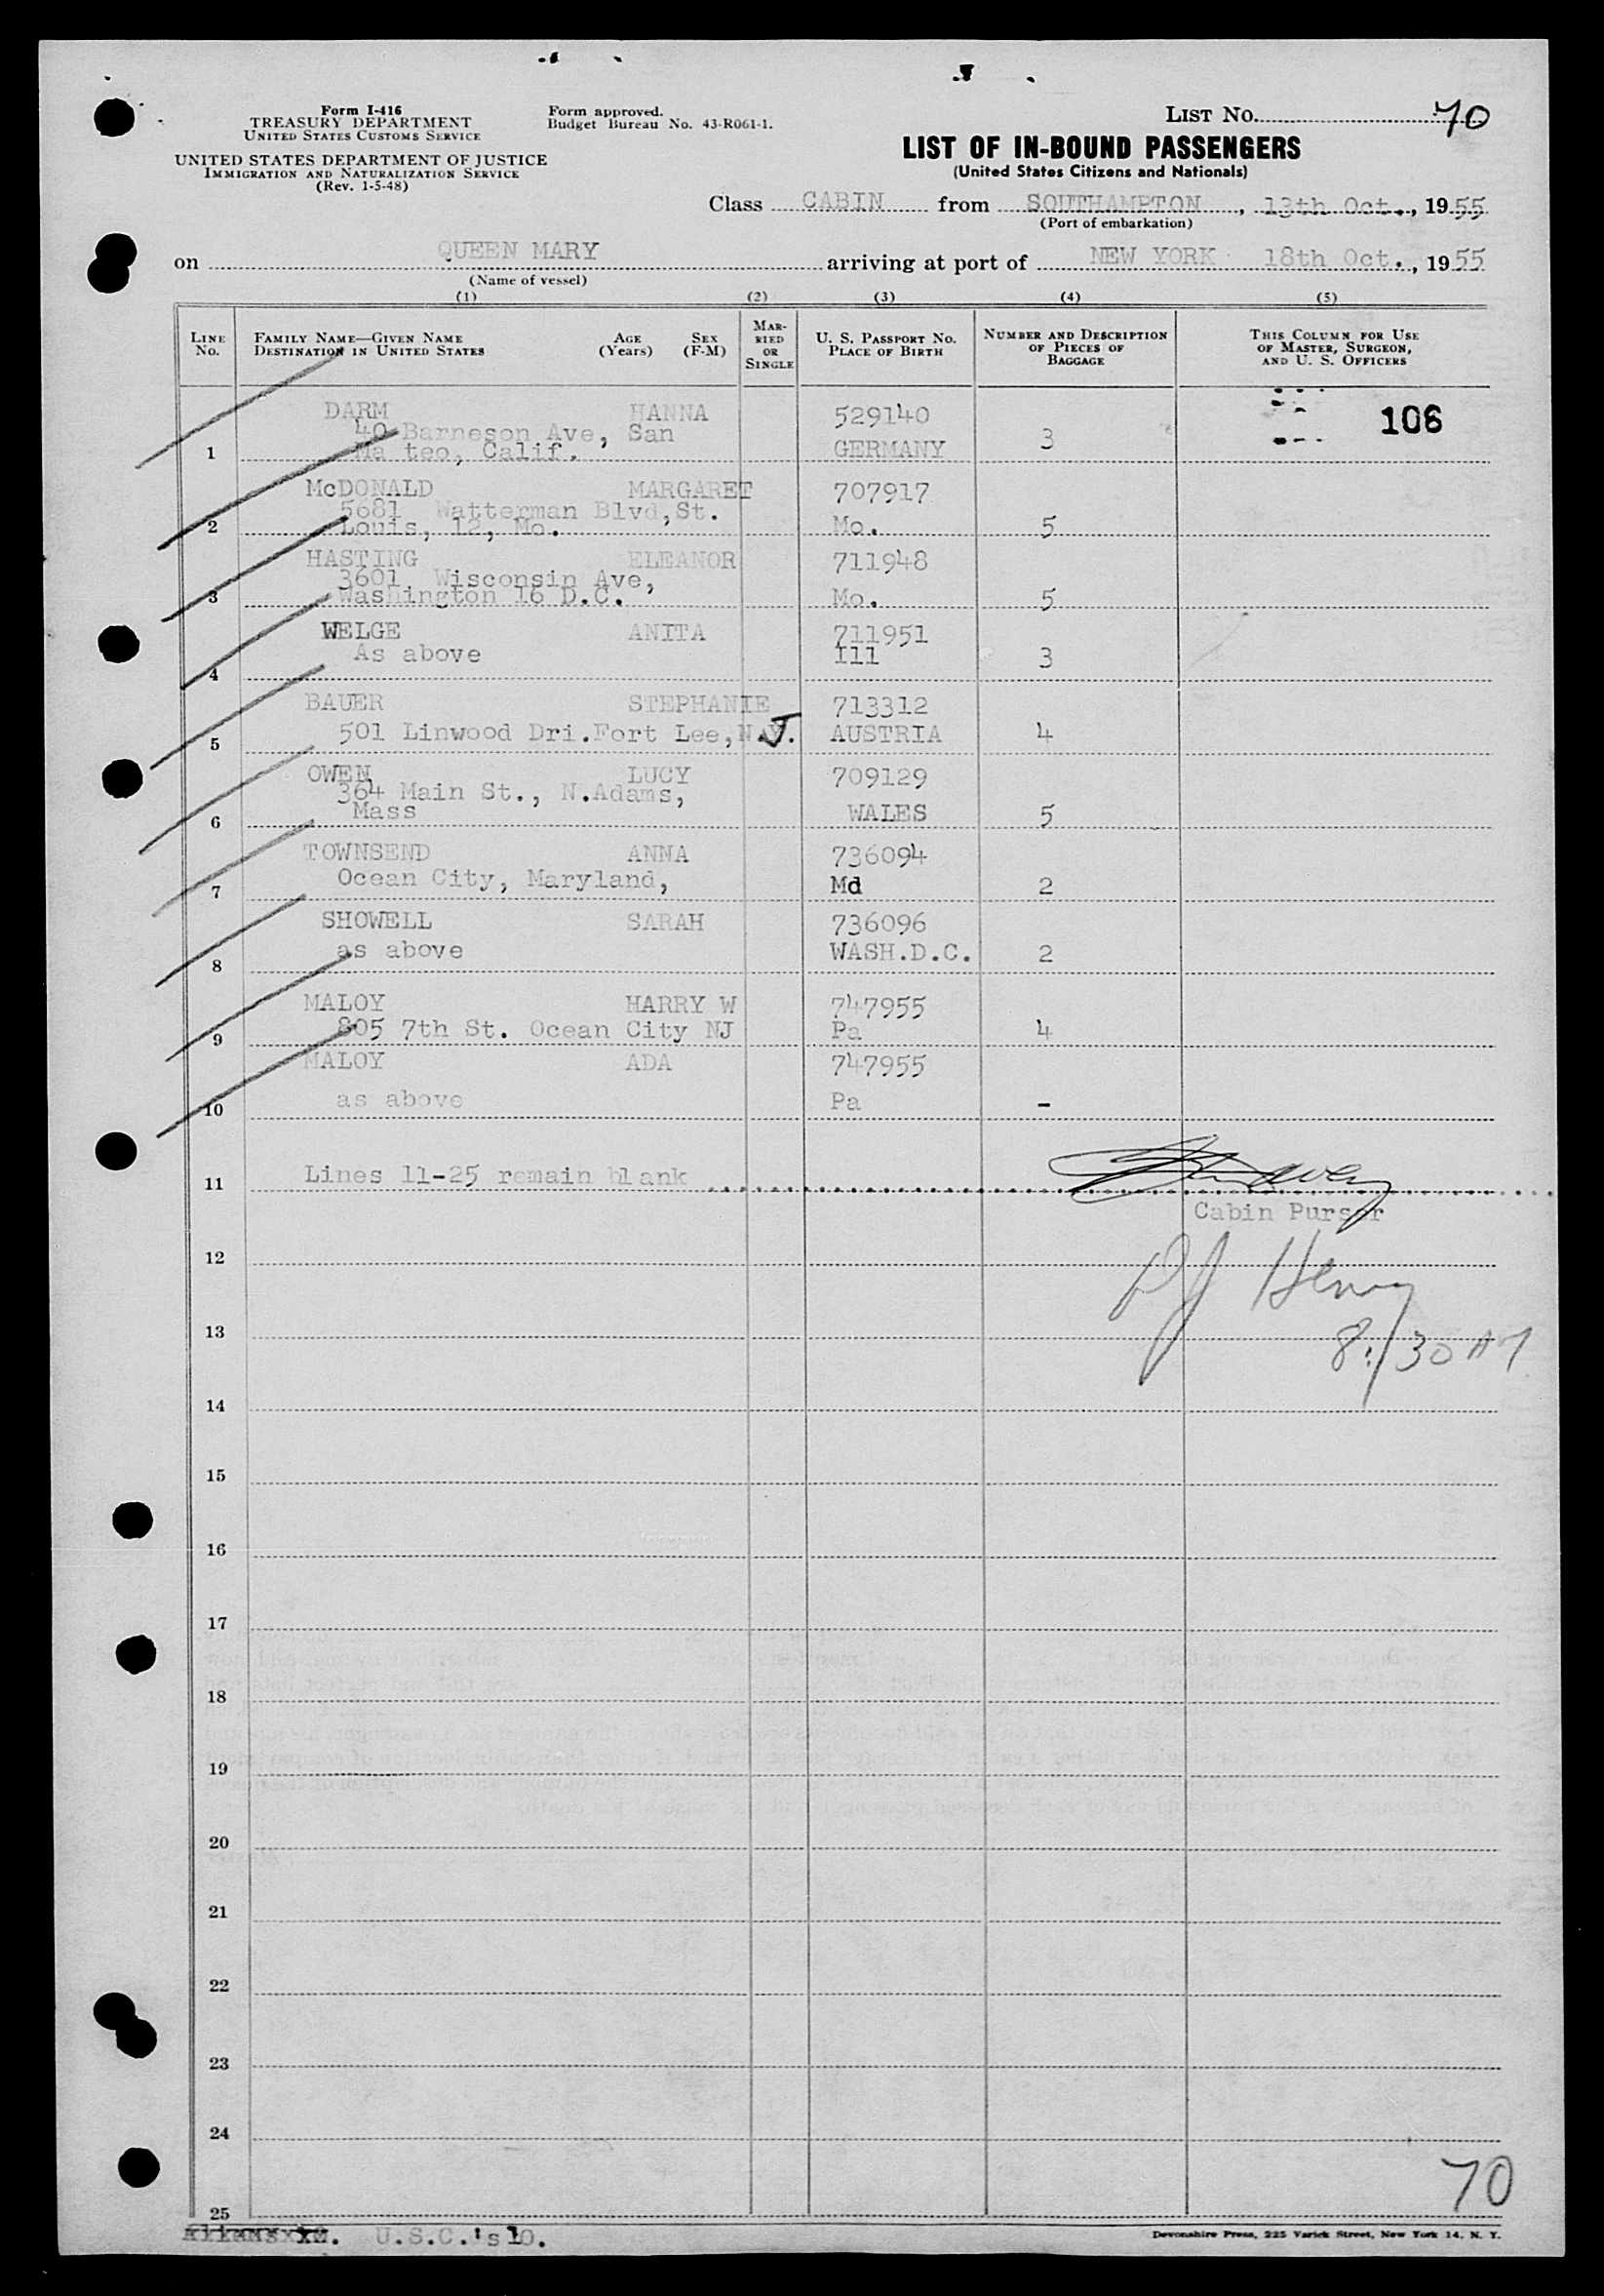 Form I-416
TREASURY DEPARTMENT
UNITED STATES CUSTOMS SERVICE
UNITED STATES DEPARTMENT OF JUSTICE
IMMIGRATION AND NATURALIZATION SERVICE
(Rev. 1-5-48)
Form approved.
Budget Bureau No. 43-R061-1.
LIST No. 70
LIST OF IN-BOUND PASSENGERS
(United States Citizens and Nationals)
Class CABIN from SOUTHAMPTON, 13th Oct., 1955
(Port of embarkation)
on QUEEN MARY arriving at port of NEW YORK 18th Oct., 1955
(Name of vessel)
(1) (2) (3) (4) (5)
LINE No. FAMILY NAME—GIVEN NAME DESTINATION IN UNITED STATES AGE (Years) SEX (F-M) MARRIED OR SINGLE U. S. PASSPORT No. PLACE OF BIRTH NUMBER AND DESCRIPTION OF PIECES OF BAGGAGE THIS COLUMN FOR USE OF MASTER, SURGEON, AND U. S. OFFICERS
DARM HANNA 529140 106
40 Barneson Ave, San
1 Ma teo, Calif. GERMANY 3
McDONALD MARGARET 707917
5681 Watterman Blvd,St.
2 Louis, 12, Mo. Mo. 5
HASTING ELEANOR 711948
3601, Wisconsin Ave,
3 Washington 16 D.C. Mo. 5
WELGE ANITA 711951
4 As above Ill 3
BAUER STEPHANIE 713312
5 501 Linwood Dri.Fort Lee,N.J. AUSTRIA 4
OWEN LUCY 709129
364 Main St., N.Adams,
6 Mass WALES 5
TOWNSEND ANNA 736094
7 Ocean City, Maryland, Md 2
SHOWELL SARAH 736096
8 as above WASH.D.C. 2
MALOY HARRY W 747955
9 805 7th St. Ocean City NJ Pa 4
MALOY ADA 747955
10 as above Pa -
11 Lines 11-25 remain blank
Cabin Purser
12
PJ Henry
13
8:30 AM
14
15
16
17
18
19
20
21
22
23
24
70
25
U.S.C.'s 10.
Devonshire Press, 225 Varick Street, New York 14, N. Y.